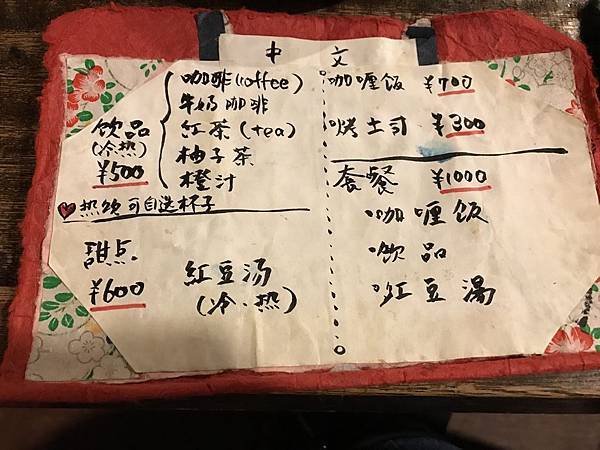 中 文
咖啡(coffee)
牛奶咖啡
飲品 紅茶(tea)
(冷热) 柚子茶
¥500 橙汁
热饮可自选杯子
甜点 紅豆汤
¥600 (冷·热)
咖喱饭 ¥700
烤土司 ¥300
套餐 ¥1000
咖喱饭
飲品
紅豆湯